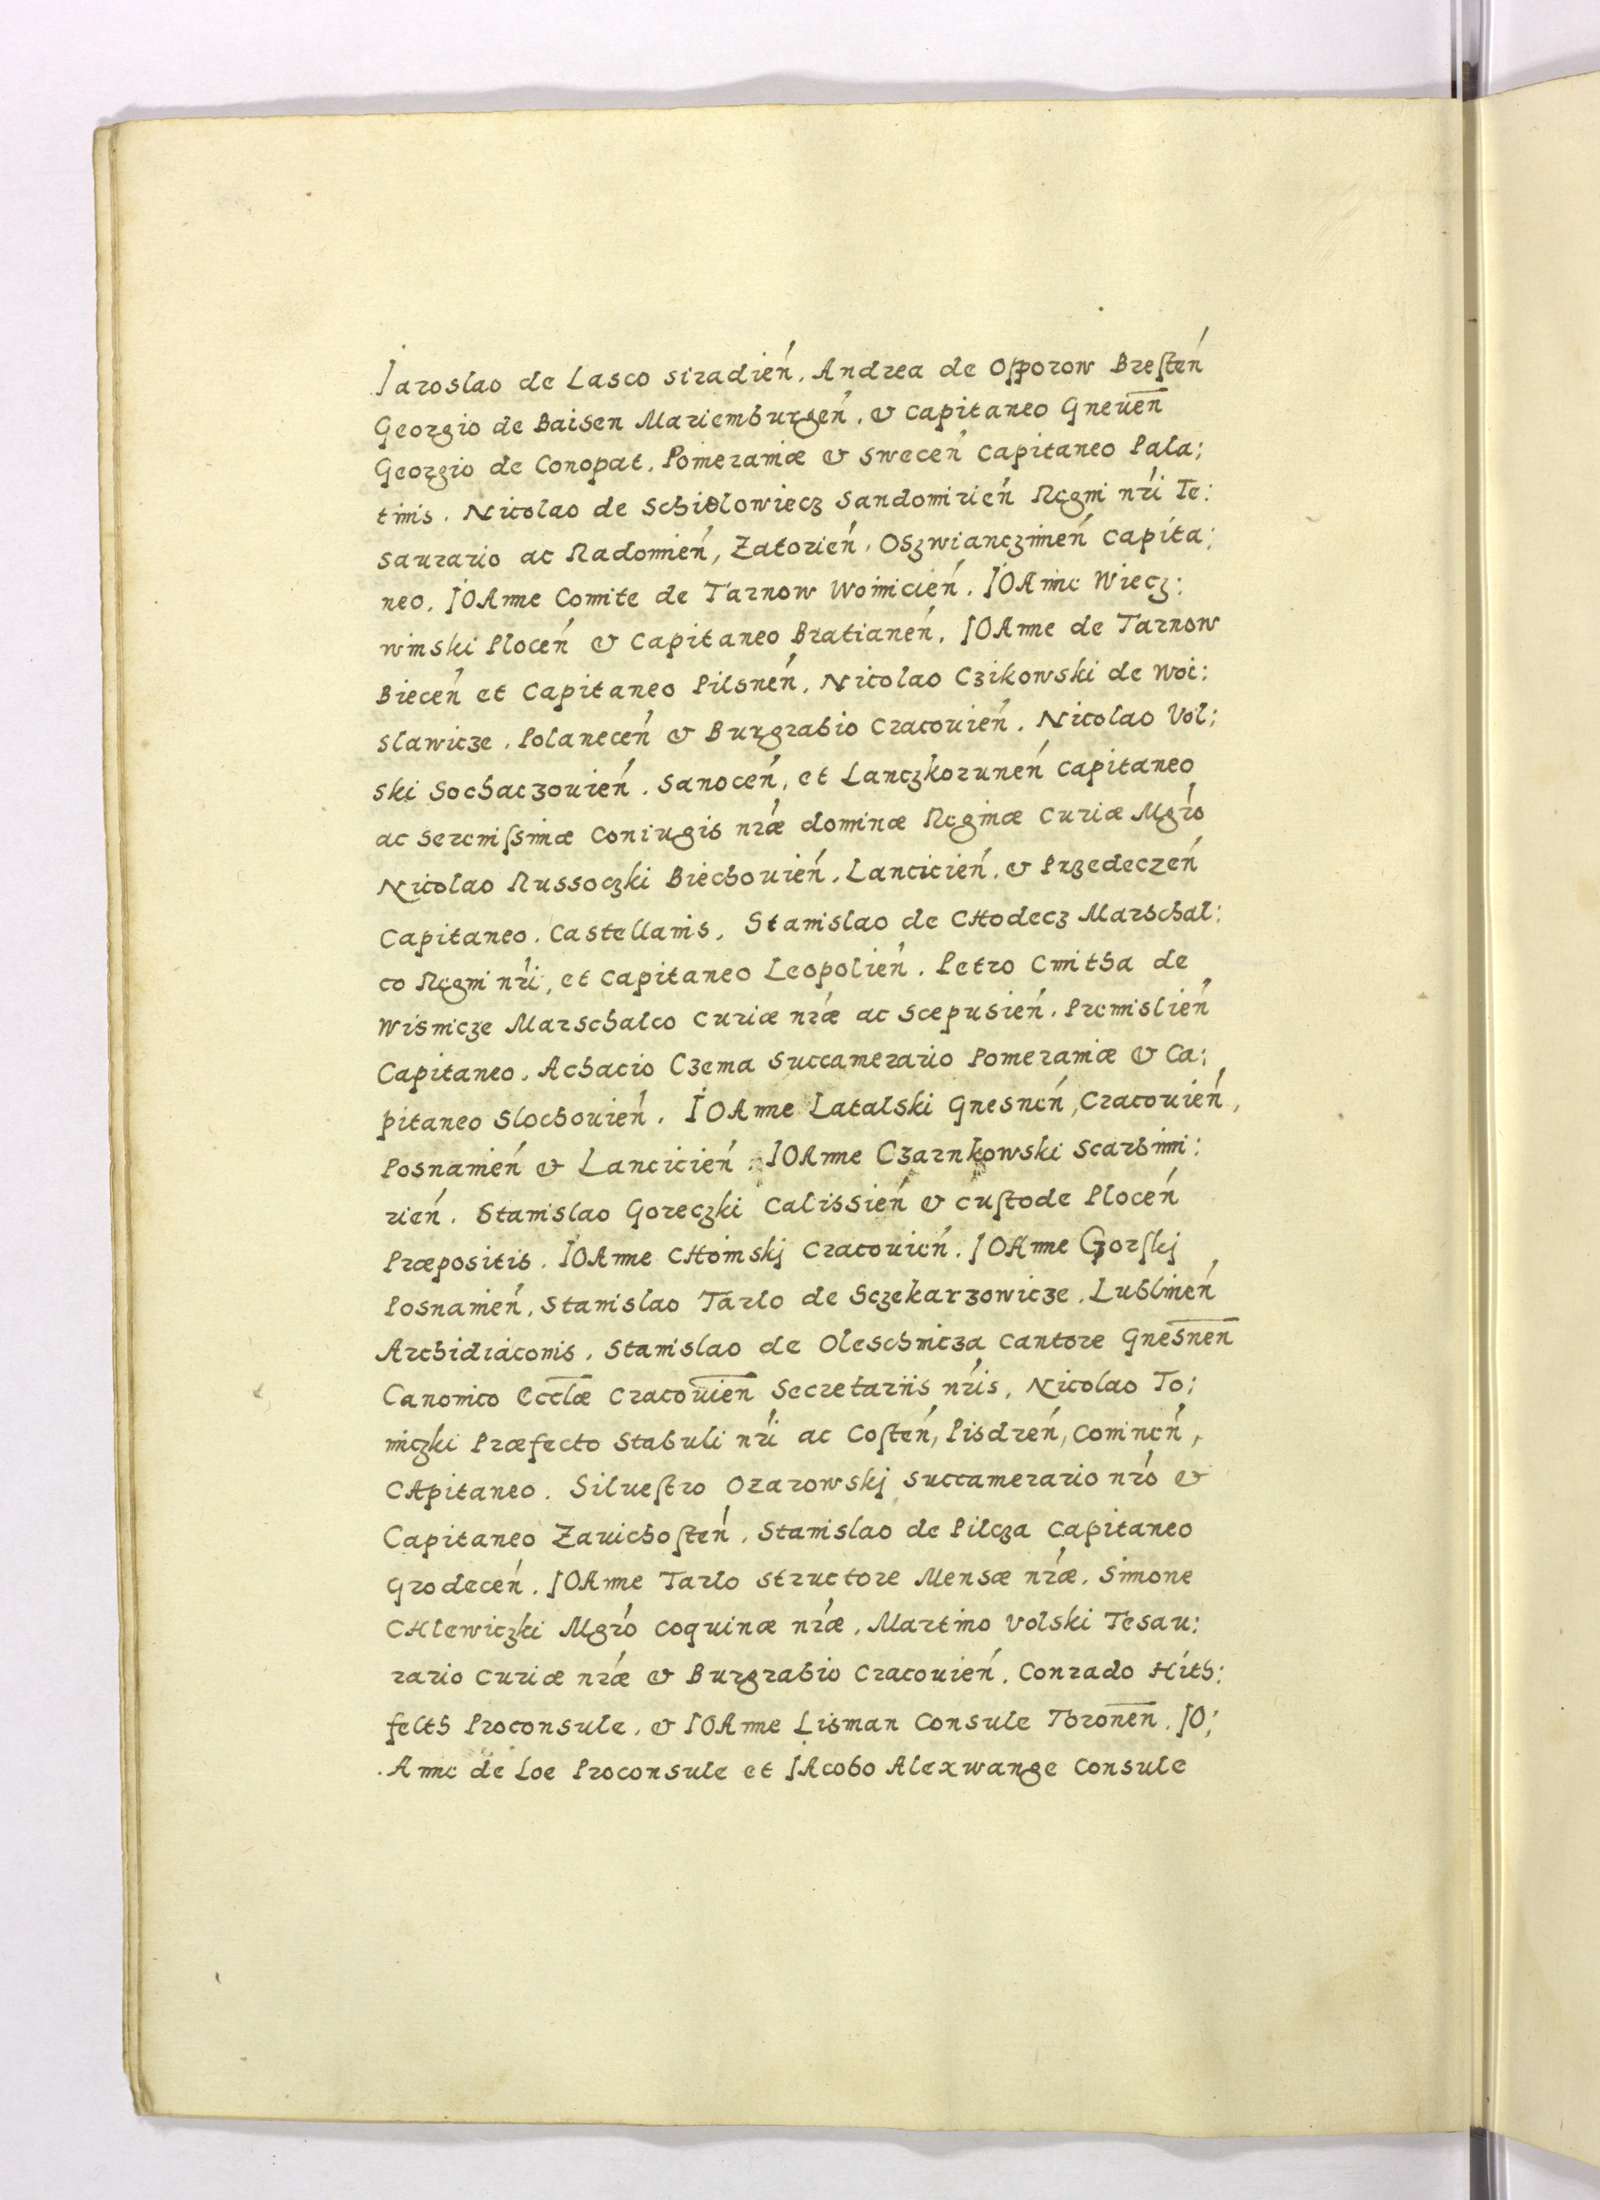 Iaroslao de Lasco siradien̄, Andrea de Opporow Bresten̄
Georgio de Baisen Mariemburgen̄, & capitaneo Gneuen̄
Georgio de Conopat, Pomeraniæ & swecen̄ capitaneo Pala;
tinis. Nicolao de Schidlowiecz Sandomirien̄ Regni nr̄i Te:
saurario ac Radomien̄, Zatorien̄, Oszwianczimen̄ capita;
neo, IOAnne Comite de Tarnow Woinicien̄, IOAnne Wiecz:
winski Plocen̄ & Capitaneo Bratianen̄, IOAnne de Tarnow
Biecen̄ et Capitaneo Pilsnen̄, Nicolao Czikowski de Woi:
slawicze, Polanecen̄ & Burgrabio Cracouien̄, Nicolao Vol;
ski Sochaczouien̄, Sanocen̄, et Lanczkorunen̄ capitaneo
ac Serenissimæ Coniugis nr̄æ dominæ Reginæ Curiæ Mgr̄o
Nicolao Russoczki Biechouien̄, Lancicien̄, & Przedeczen̄
Capitaneo, Castellanis, Stanislao de CHodecz Marschal:
co Regni nr̄i, et capitaneo Leopolien̄, Petro Cmitha de
Wisnicze Marschalco Curiæ nr̄æ ac Scepusien̄, Premislien̄
Capitaneo, Achacio Czema Succamerario Pomeraniæ & Ca;
pitaneo Slochouien̄, IOAnne Latalski Gnesnen̄, Cracouien̄,
Posnanien̄ & Lancicien̄, IOAnne Czarnkowski Scarbimi:
rien̄, Stanislao Goreczki Calissien̄ & custode Plocen̄
Præpositis, IOAnne CHoinskj Cracouien̄, IOAnne Gorskj
Posnanien̄, Stanislao Tarlo de Sczekarzowicze, Lublinen̄
Archidiaconis, Stanislao de Oleschnicza Cantore Gnesnen̄
Canonico Eccl̄æ Cracouien̄ Secretariis nr̄is, Nicolao To;
miczki Præfecto Stabuli nr̄i ac Costen̄, Pisdren̄, Coninen̄,
CApitaneo, Siluestro Ozarowskj Succamerario nr̄o &
Capitaneo Zauichosten̄, Stanislao de Pilcza Capitaneo
Grodecen̄, IOAnne Tarlo Structore Mensæ nr̄æ, Simone
CHlewiczki Mgr̄o coquinæ nr̄æ, Martino Volski Tesau:
rario Curiæ nr̄æ & Burgrabio Cracouien̄, Conrado Hith:
felth Proconsule, & IOAnne Lisman Consule Toronen̄, IO;
Anne de Loe Proconsule et IAcobo Alexwange Consule